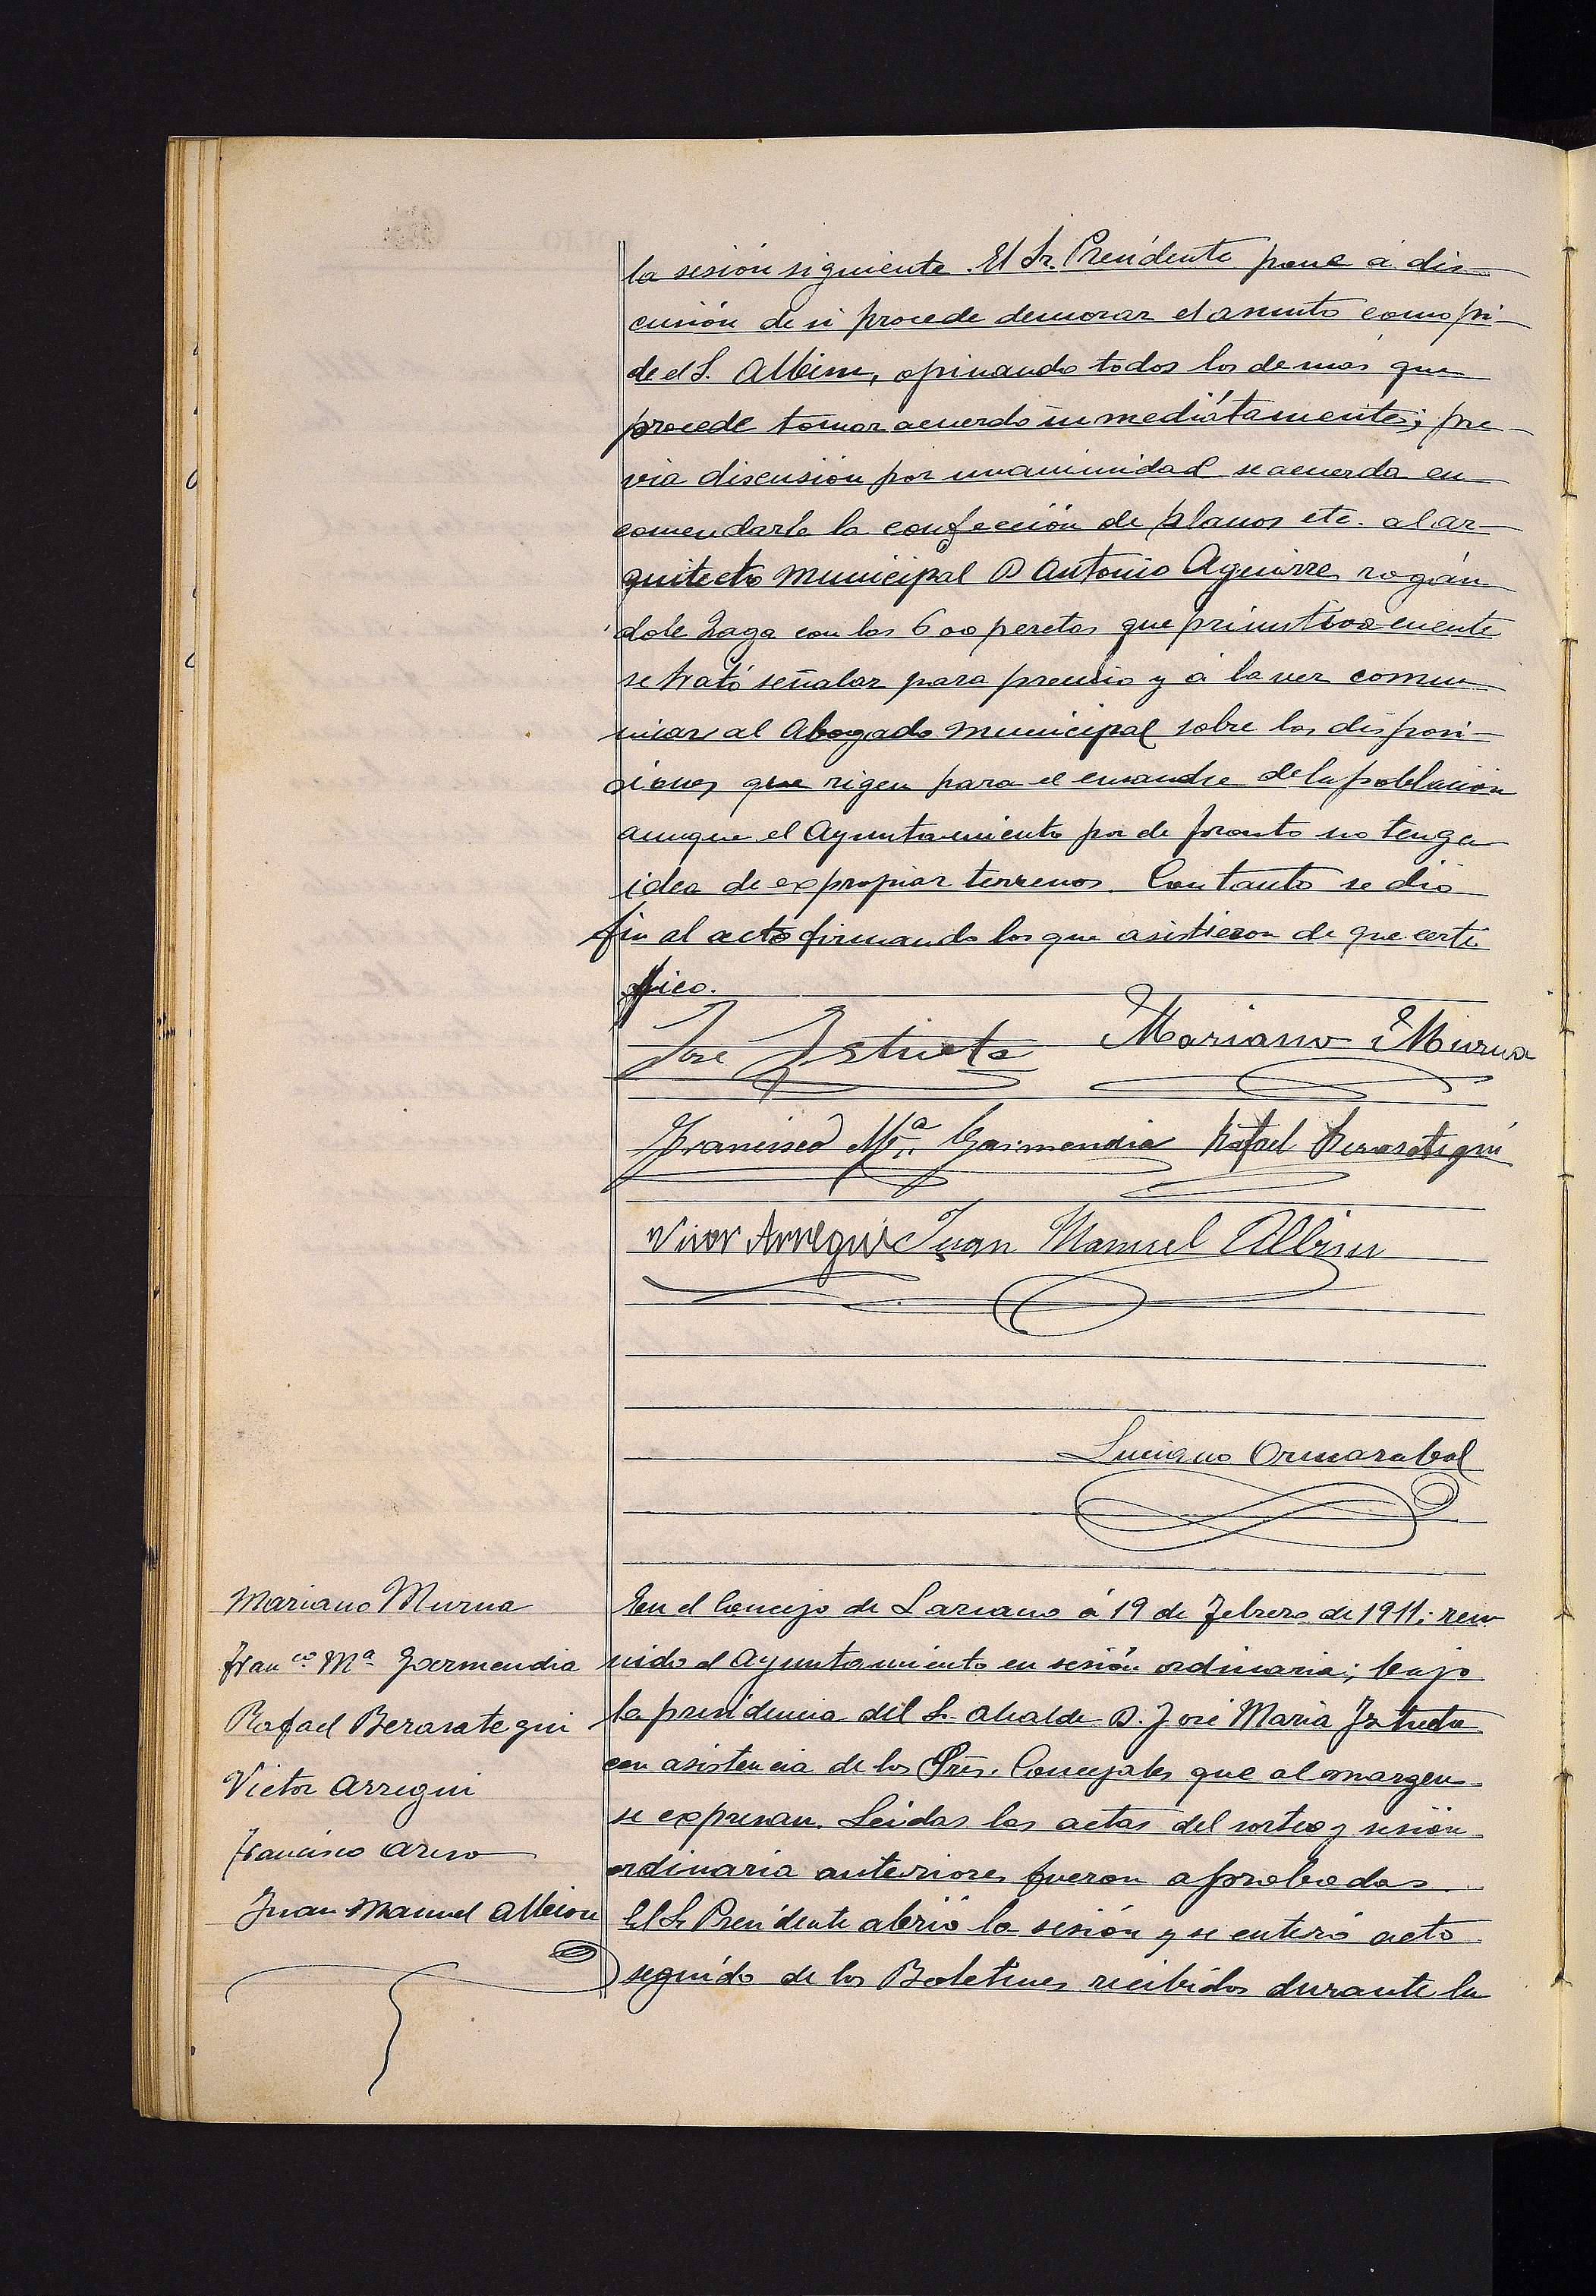 la sesión siguiente. El Sr. Presidente pone á dis-
cusión de si procede demorar el asunto como pi-
de el S. Albisu, opinando todos los demas que
procede tomar acuerdo inmediátamente; pre-
via discusión por unanimidad se acuerda en
comendarle la confección de planos etc. al ar-
quitecto municipal D Antonio Aguirre rogán
dole haga con las 600 pesetas que primitivamente
se trató señalar para premio y á la vez comu
nicar al Abogado municipal sobre las disposi-
ciones que rigen para el ensanche de la población
aunque el Ayuntamiento por de pronto no tenga
idea de expropiar terrenos. Con tanto se dió
fin al acto firmando los que asistieron de que certi
fico.
José Iztueta Mariano Murua
Francisco Mª Garmendia Rafael Berasategui
Victor Arregui Juan Manuel Albisu
Luciano Ormazabal
Mariano Murua
Franco. Mª Garmendia
Rafael Berasategui
Victor Arregui
Francisco
Juan Manuel Albisu
En el Concejo de Lazcano á 19 de Febrero de 1911; reu
nido el Ayuntamiento en sesión ordinaria; bajo
la presidencia del Sr. Alcalde D. José Maria Iztueta
con asistencia de los Sres. Concejales que al margen
se expresan. Leidas las actas del sorteo y sesión
ordinaria anteriores fueron aprobadas.
El Sr Presidente abrió la sesión y se enteró acto
seguido de los Boletines recibidos durante la